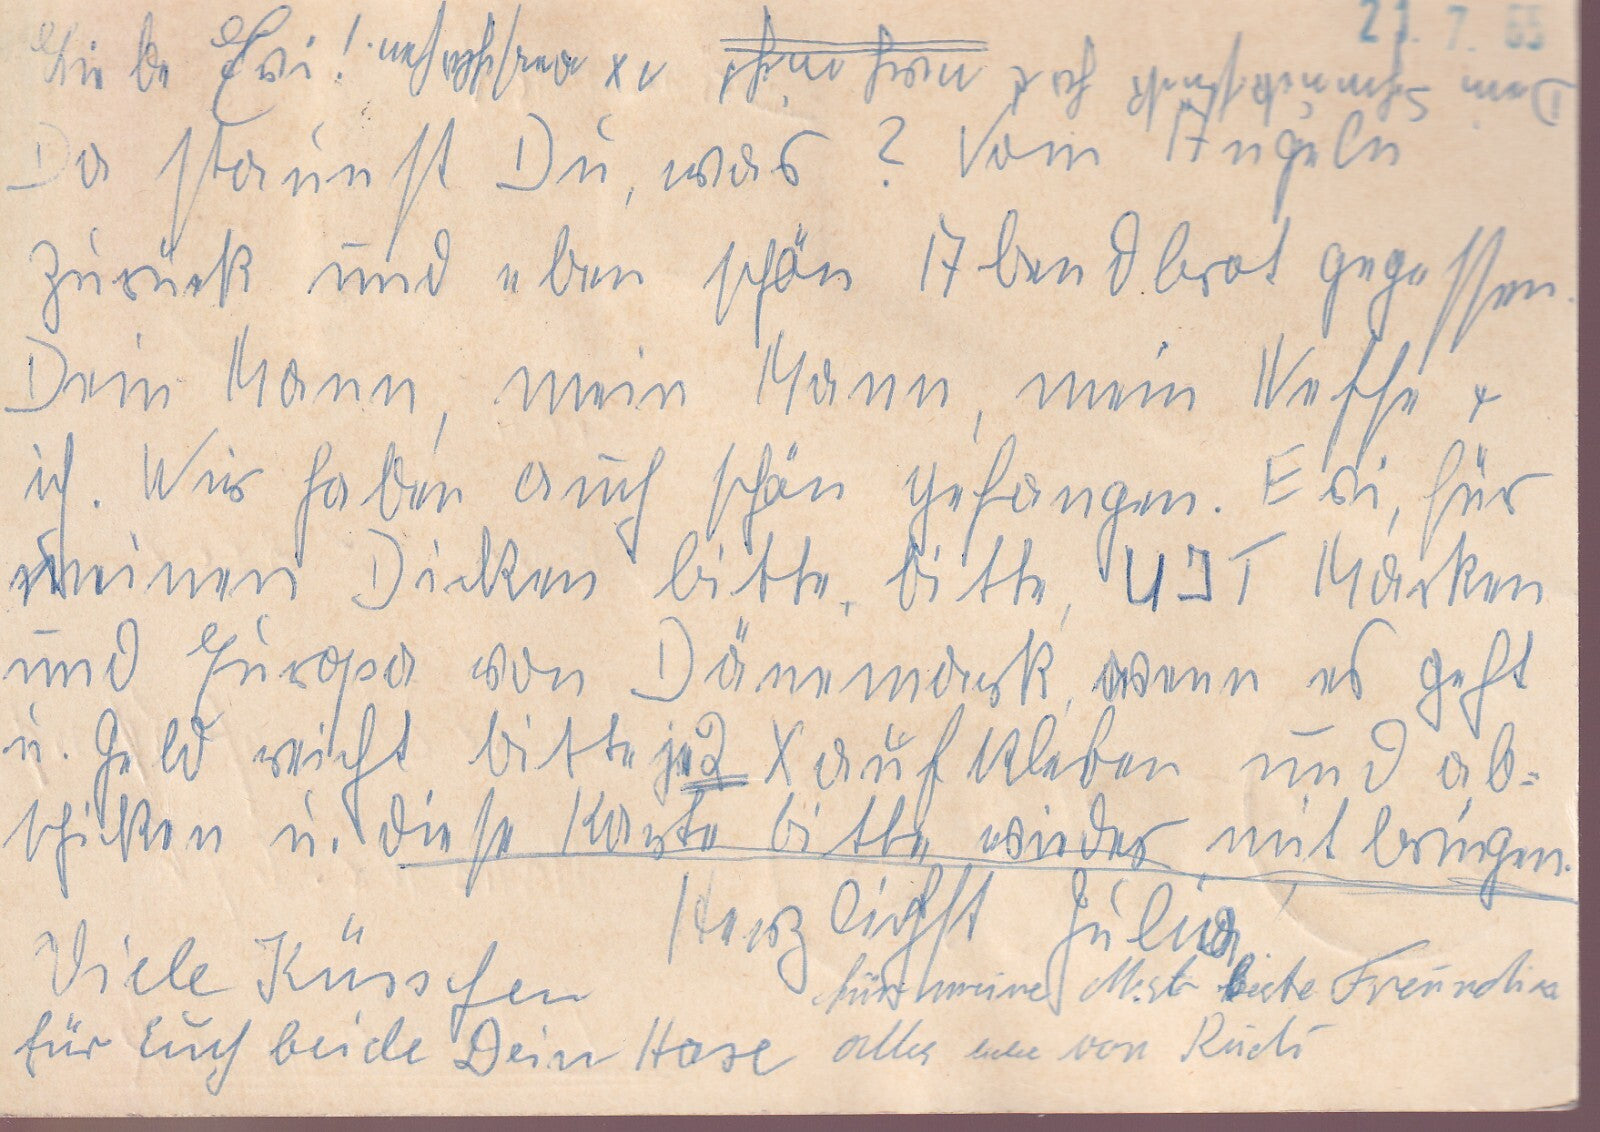 21. 7. 65
Liebe Evi!
Da staunst Du, was? Vom Angeln
zurück und eben schön Abendbrot gegessen.
Dein Mann, mein Mann, mein Neffe +
ich. Wir haben auch schön gefangen. Evi, für
meinen Dicken bitte, bitte, UIT Marken
und Europa von Dänemark, wenn es geht
u. Geld reicht bitte je 2 X aufkleben und ab-
schicken u. diese Karte bitte wieder mit bringen.
Herzlichst Julia
Viele Küsschen
für Euch beide Dein Hase
für meine Freundin
alles von Rudi
Dein